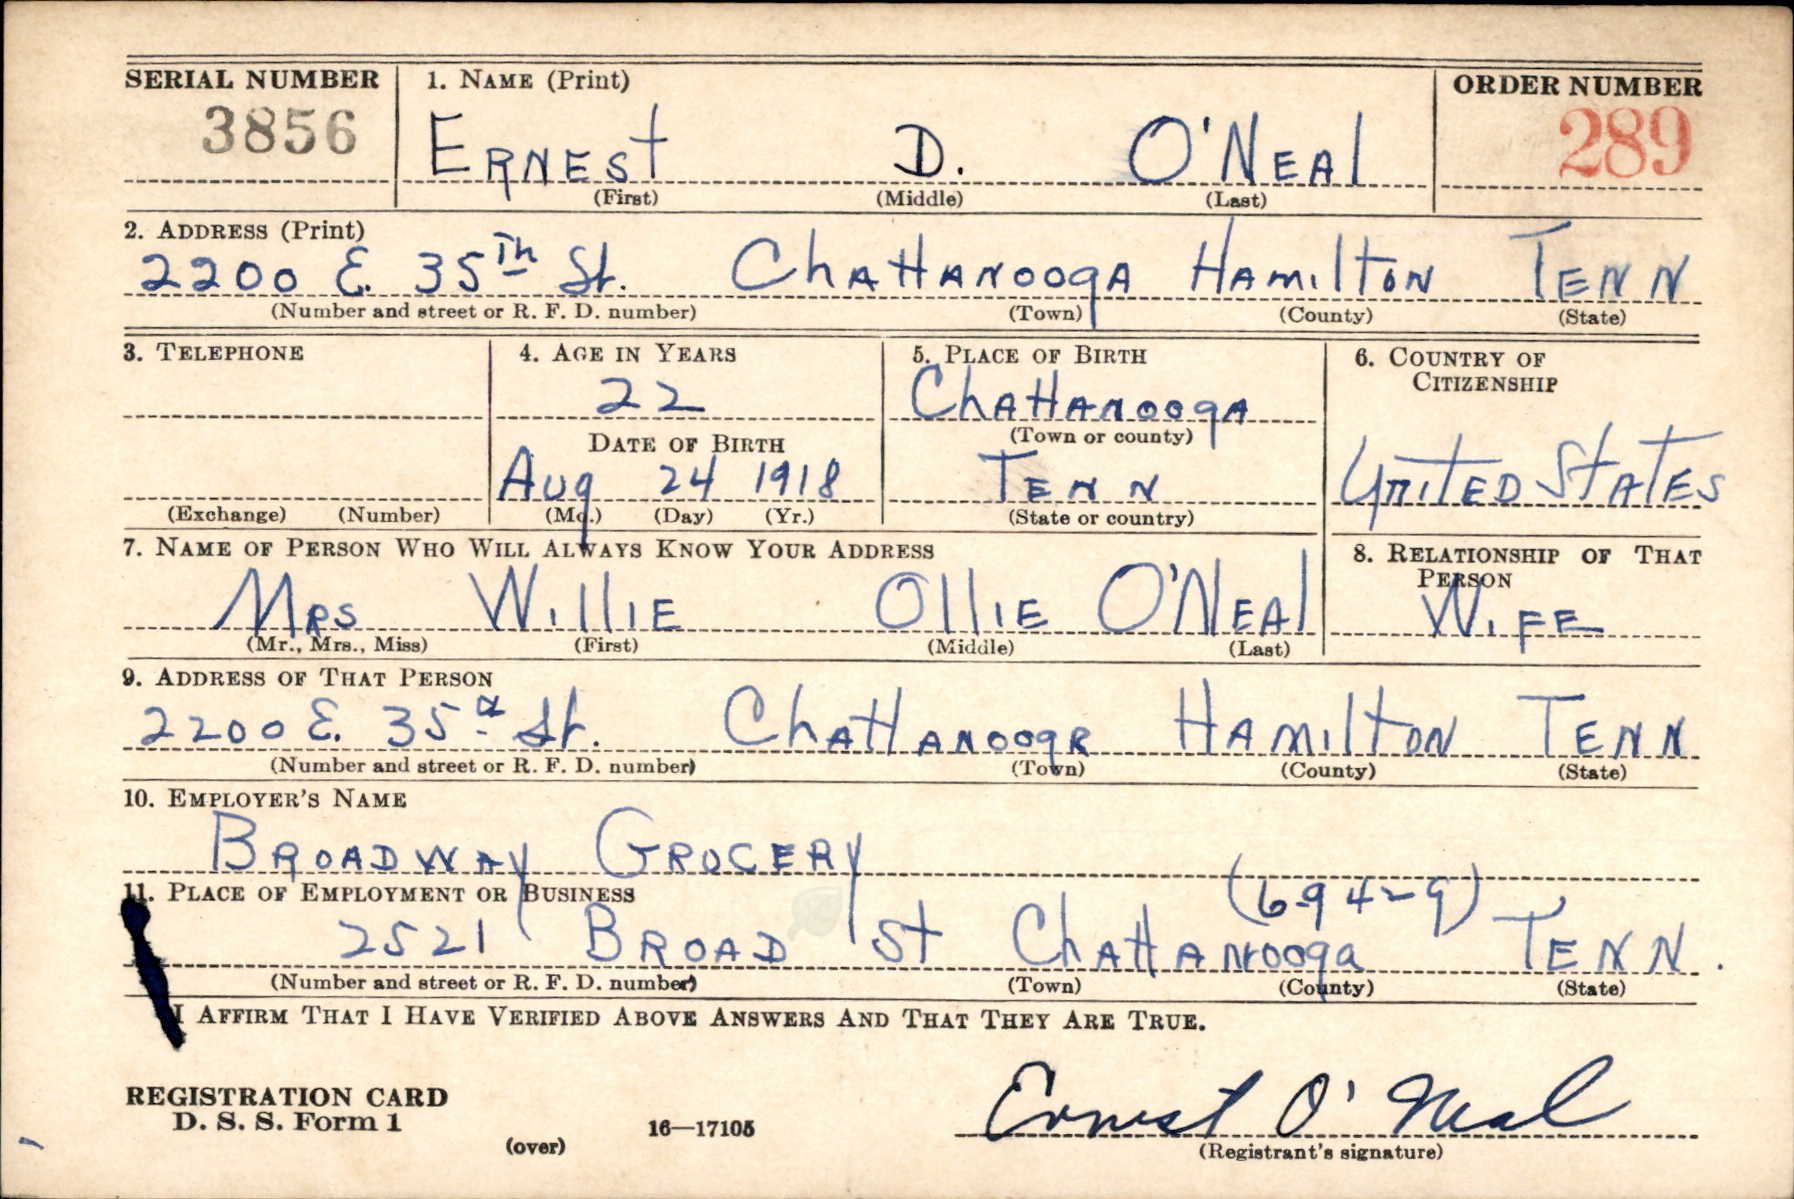 SERIAL NUMBER 1. NAME (Print) ORDER NUMBER
3856 ERNEST D. O'NEAL 289
(First) (Middle) (Last)
2. ADDRESS (Print)
2200 E. 35Th St. ChATTANOOgA HAMILTON TENN
(Number and street or R. F. D. number) (Town) (County) (State)
3. TELEPHONE 4. AGE IN YEARS 5. PLACE OF BIRTH 6. COUNTRY OF
CITIZENSHIP
22 ChATTANOOgA
DATE OF BIRTH (Town or county)
Aug 24 1918 TENN UNITED STATES
(Exchange) (Number) (Mo.) (Day) (Yr.) (State or country)
7. NAME OF PERSON WHO WILL ALWAYS KNOW YOUR ADDRESS 8. RELATIONSHIP OF THAT
PERSON
MRS WILLIE OLLIE O'NEAL WIFE
(Mr., Mrs., Miss) (First) (Middle) (Last)
9. ADDRESS OF THAT PERSON
2200 E. 35th St. ChATTANOOgA HAMILTON TENN
(Number and street or R. F. D. number) (Town) (County) (State)
10. EMPLOYER'S NAME
BROADWAY GROCERY
11. PLACE OF EMPLOYMENT OR BUSINESS (6942-9)
2521 BROAD St ChATTANOOga TENN.
(Number and street or R. F. D. number) (Town) (County) (State)
I AFFIRM THAT I HAVE VERIFIED ABOVE ANSWERS AND THAT THEY ARE TRUE.
REGISTRATION CARD
D. S. S. Form 1 Ernest O'Neal
(over) 16—17105 (Registrant's signature)